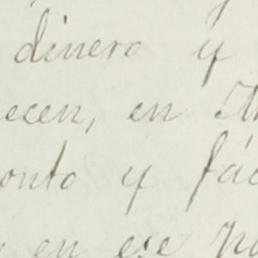 dinero y
ecen, en
onto y fác
en ese pa